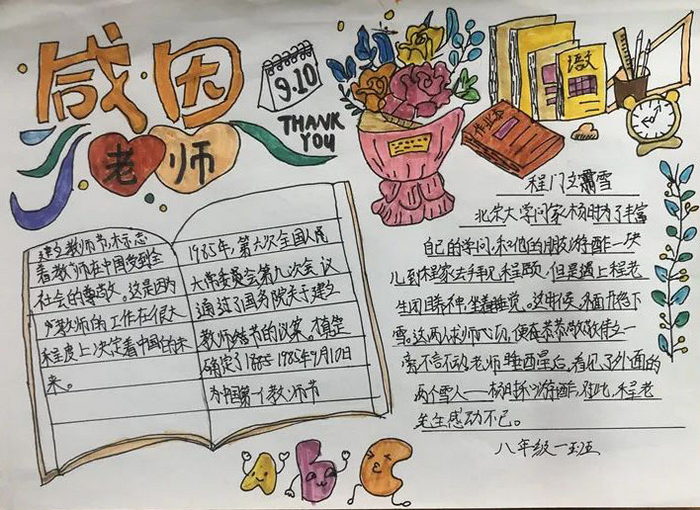 感因
老师
9.10
THANK
YOU
作业本
语文
建立教师节,标志
着教师在中国受到全
社会的尊敬。这是因为
教师的工作在很大
程度上决定着中国的未
来。
1985年,第六次全国人民
大常委员会第九次会议
通过了国务院关于建立
教师节的议案。
确定了1985年9月10日
为中国第一个教师节
程门立雪
北宋大学问家杨时为了丰富
自己的学问,和他的朋友游酢一块
儿到程家去拜见程颐,但是遇上程老
先生闭目养神,坐着睡觉。这时候,外面
雪。这两人求师心切,便恭恭敬敬侍立一
旁,不言不动,老师醒后,看见了外面的
两个雪人——杨时和游酢,对此,程老
先生感动不已。
八年级一班
A b C